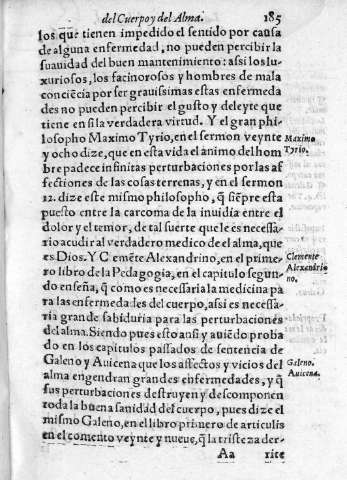 del Cuerpo y del Alma. 185
los que tienen impedido el sentido por causa
de alguna enfermedad, no pueden percibir la
suauidad del buen mantenimiento: assi los lu-
xuriosos, los facinorosos y hombres de mala
conciēcia por ser grauissimas estas enfermeda
des no pueden percibir el gusto y deleyte que
tiene en si la verdadera virtud. Y el gran phi-
losopho Maximo Tyrio, en el sermon veynte
y ocho dize, que en esta vida el animo del hom
bre padece infinitas perturbaciones por las af
fectiones de las cosas terrenas, y en el sermon
12. dize este mismo philosopho, q̃ siēpre esta
puesto entre la carcoma de la inuidia entre el
dolor y el temor, de tal suerte que le es necessa-
rio acudir al verdadero medico de el alma, que
es Dios. Y Clemēte Alexandrino, en el prime-
ro libro de la Pedagogia, en el capitulo segun-
do enseña, q̃ como es necessaria la medicina pa
ra las enfermedades del cuerpo, assi es necessa-
ria grande sabiduria para las perturbaciones
del alma. Siendo pues esto ansi y auiēdo proba
do en los capitulos passados de sentencia de
Galeno y Auicena que los affectos y vicios del
alma engendran grandes enfermedades, y q̃
sus perturbaciones destruyen y descomponen
toda la buena sanidad del cuerpo, pues dize el
mismo Galeno, en el libro primero de articulis
en el comento veynte y nueue, q̃ la tristeza der-
Aa rite
Maximo
Tyrio.
Clemente
Alexandri
no.
Galeno.
Auicena.